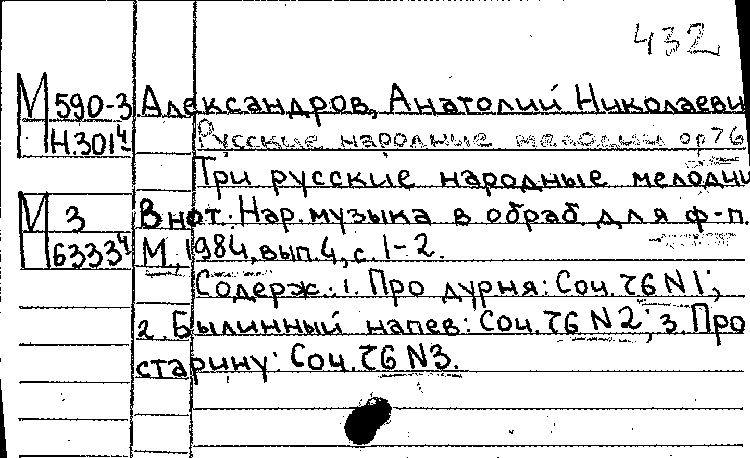 432
М 590-3 Александров, Анатолий Николаеви
Н.301ч Русские народные мелодии ор76
Три русские народные мелодии
М 3 В нот.: Нар. музыка в обраб. для ф-п.
П 6333ч М., 1984, вып. 4, с. 1-2.
Содерж.: 1. Про дурня: Соч. 76 N1;
2. Былинный напев: Соч. 76 N2; 3. Про
старину: Соч. 76 N3.